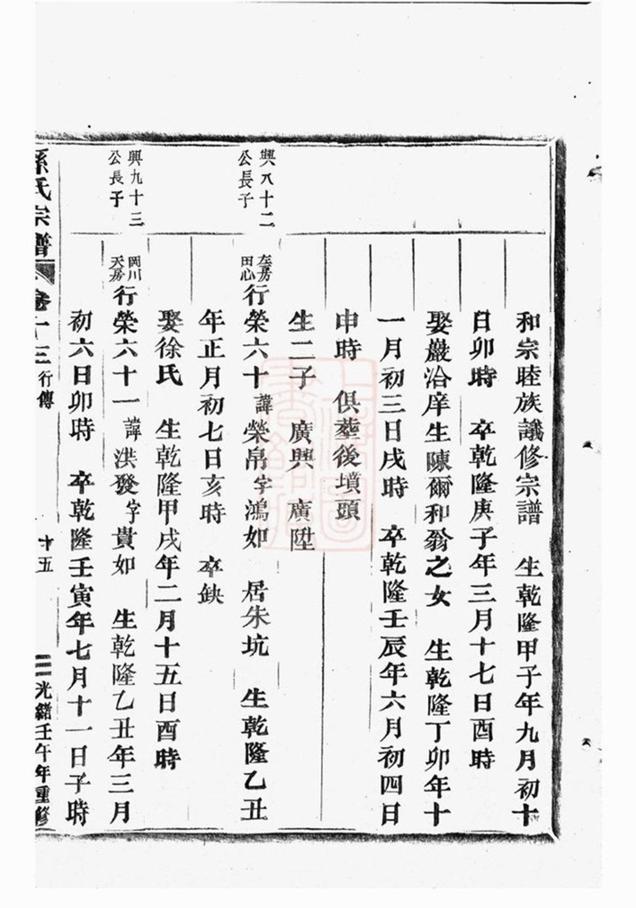 和宗睦族議修宗譜　生乾隆甲子年九月初十
日卯時　卒乾隆庚子年三月十七日酉時
娶嚴治庠生陳爾和翁之女　生乾隆丁卯年十
一月初三日戌時　卒乾隆壬辰年六月初四日
申時　俱塟後墳頭
生二子　廣興　廣陞
興八十二公長子
左房田心行榮六十諱榮帛字鴻如　居朱坑　生乾隆乙丑
年正月初七日亥時　卒缺
娶徐氏　生乾隆甲戌年二月十五日酉時
興九十三公長子
岡川天房行榮六十一諱洪發字貴如　生乾隆乙丑年三月
初六日卯時　卒乾隆壬寅年七月十一日子時
孫氏宗譜　卷十三　行傳　十五　光緒壬午年重修